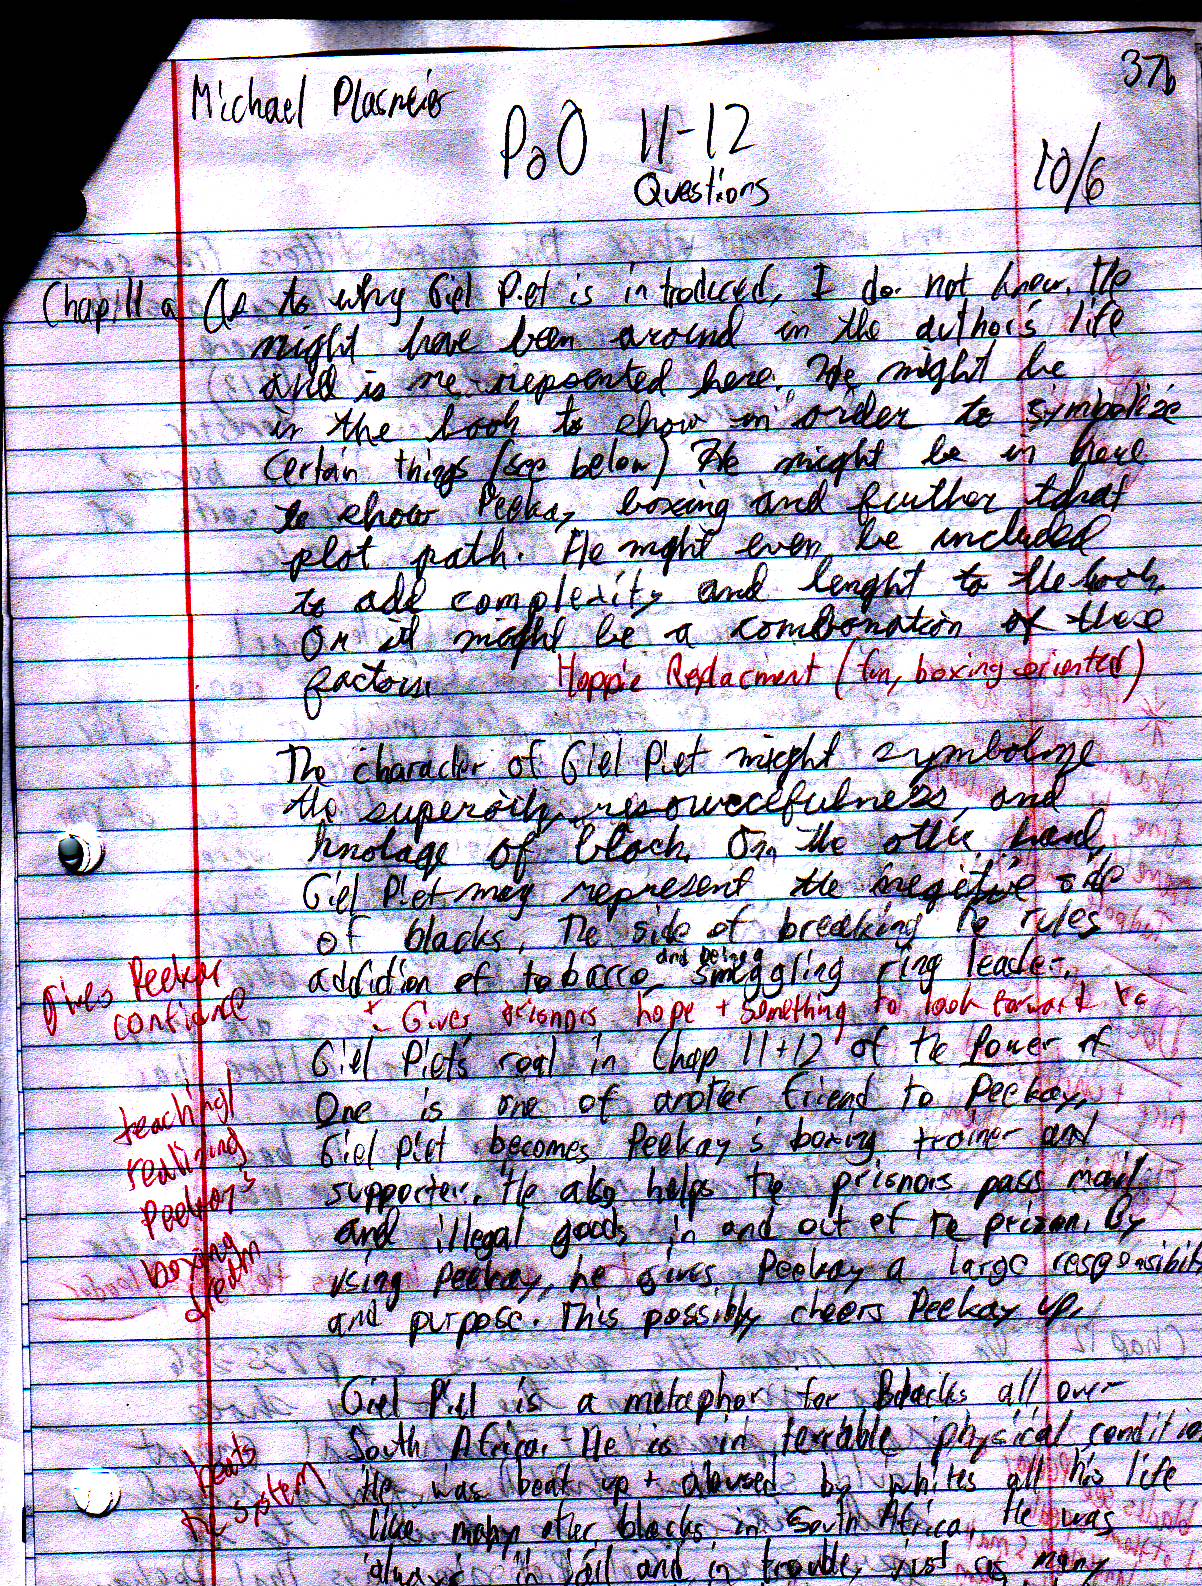 37b
Michael Plasmeier
PoO 11-12
Questions
10/6
Chap 11 a As to why Giel Piet is introduced, I do not know. He
might have been around in the author's life
and is re-repsented here. He might be
in the book to show in order to symbolize
certain things (see below) He might be in here
to show Peekay boxing and further that
plot path. He might even be included
to add complexity and lenght to the book.
Or it might be a combonation of these
factors.
Hoppie Replacment (fun, boxing oriented)
The character of Giel Piet might symbolize
the superoity, resourcefulness, and
knolage of black. On the other hand,
Giel Piet may represent the negitive side
of blacks. The side of breaking the rules
addiction of tobacco, and being a smuggling ring leader.
Gives Peekay
confidence
+ Gives prisnors hope + something to look forward to
Giel Piet's roal in Chap 11+12 of the Power of
One is one of another friend to Peekay.
Giel Piet becomes Peekay's boxing trainer and
supporter. He also helps the prisnors pass mail
and illegal goods in and out of the prison. By
using Peekay, he gives Peekay a large responsibilit
and purpose. This possibly cheers Peekay up.
teaching/
realizing
Peekay's
boxing
dream
Giel Piet is a metaphor for Blacks all over
South Africa. He is in terrable physical conditio
He was beat up + abused by whites all his life
like many other blacks in South Africa. He was
always in jail and in trouble, just as many
beats
the system